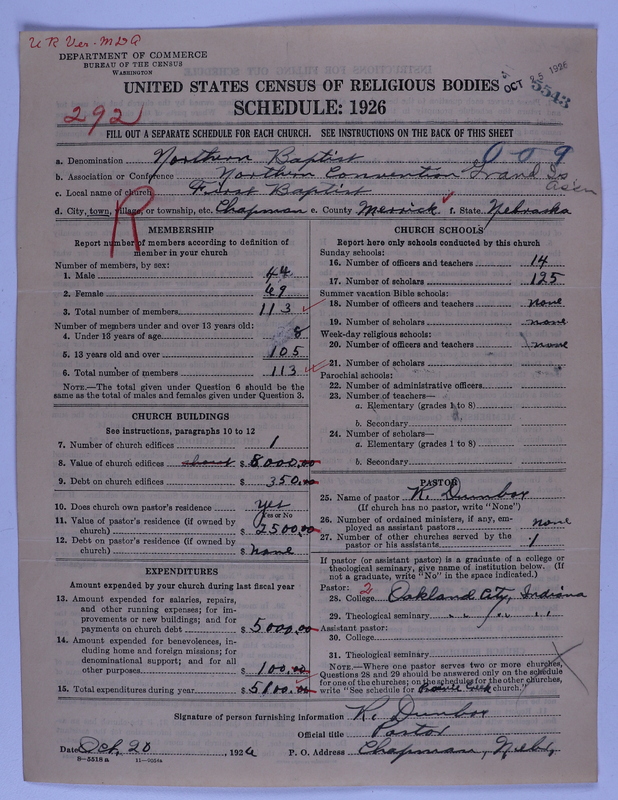 U R Ver. M D A
DEPARTMENT OF COMMERCE
BUREAU OF THE CENSUS
WASHINGTON
UNITED STATES CENSUS OF RELIGIOUS BODIES
OCT 25 1926
5543
SCHEDULE: 1926
292
FILL OUT A SEPARATE SCHEDULE FOR EACH CHURCH. SEE INSTRUCTIONS ON THE BACK OF THIS SHEET
a. Denomination Northern Baptist 009
b. Association or Conference Northern Convention Grand Is
Assn
c. Local name of church First Baptist
d. City, town, village, or township, etc. Chapman e. County Merrick f. State Nebraska
R
MEMBERSHIP
Report number of members according to definition of
member in your church
Number of members, by sex:
1. Male 44
2. Female 69
3. Total number of members 113
Number of members under and over 13 years old:
4. Under 13 years of age 8
5. 13 years old and over 105
6. Total number of members 113
NOTE.—The total given under Question 6 should be the
same as the total of males and females given under Question 3.
CHURCH BUILDINGS
See instructions, paragraphs 10 to 12
7. Number of church edifices 1
8. Value of church edifices about $ 8000.00
9. Debt on church edifices $ 350.00
10. Does church own pastor's residence yes
Yes or No
11. Value of pastor's residence (if owned by
church) $ 2500.00
12. Debt on pastor's residence (if owned by
church) $ none
EXPENDITURES
Amount expended by your church during last fiscal year
13. Amount expended for salaries, repairs,
and other running expenses; for im-
provements or new buildings; and for
payments on church debt $ 5000.00
14. Amount expended for benevolences, in-
cluding home and foreign missions; for
denominational support; and for all
other purposes $ 100.00
15. Total expenditures during year $ 5100.00
CHURCH SCHOOLS
Report here only schools conducted by this church
Sunday schools:
16. Number of officers and teachers 14
17. Number of scholars 125
Summer vacation Bible schools:
18. Number of officers and teachers none
19. Number of scholars none
Week-day religious schools:
20. Number of officers and teachers none
21. Number of scholars
Parochial schools:
22. Number of administrative officers
23. Number of teachers—
a. Elementary (grades 1 to 8)
b. Secondary
24. Number of scholars—
a. Elementary (grades 1 to 8)
b. Secondary
PASTOR
25. Name of pastor K. Dunbar
(If church has no pastor, write "None")
26. Number of ordained ministers, if any, em-
ployed as assistant pastors none
27. Number of other churches served by the
pastor or his assistants 1
If pastor (or assistant pastor) is a graduate of a college or
theological seminary, give name of institution below. (If
not a graduate, write "No" in the space indicated.)
Pastor: 2
28. College Oakland City, Indiana
29. Theological seminary " " "
Assistant pastor:
30. College
31. Theological seminary
NOTE.—Where one pastor serves two or more churches,
Questions 28 and 29 should be answered only on the schedule
for one of the churches; on the schedules for the other churches,
write "See schedule for Prairie Creek church."
Signature of person furnishing information K. Dunbar
Official title Pastor
Date Oct. 20, 1926 P. O. Address Chapman, Nebr.
8-5518 a 11-9024a